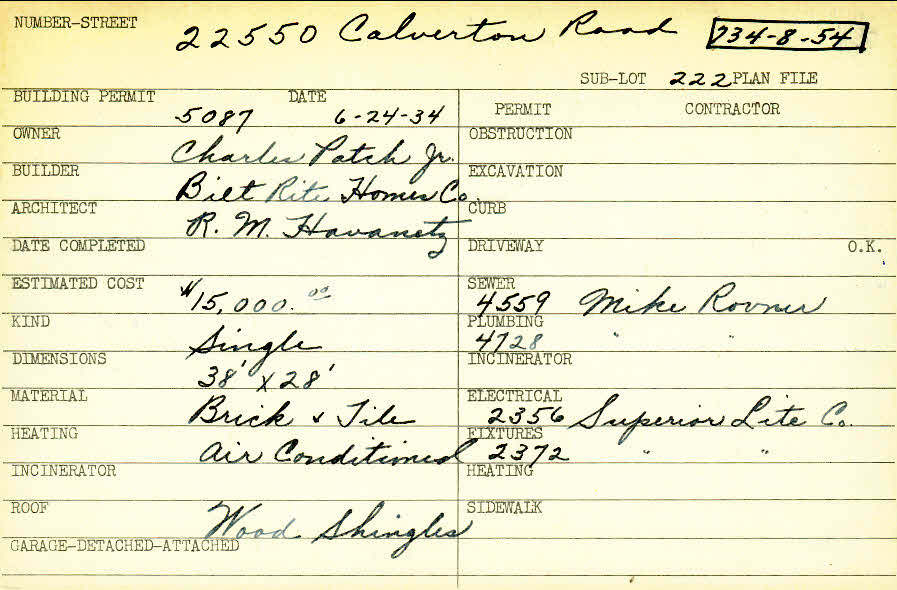 NUMBER-STREET 22550 Calverton Road 734-8-54
SUB-LOT 222 PLAN FILE
BUILDING PERMIT 5087 DATE 6-24-34
PERMIT CONTRACTOR
OWNER Charles Patch Jr.
OBSTRUCTION
BUILDER Bilt Rite Homes Co.
EXCAVATION
ARCHITECT R. M. Havanetz
CURB
DATE COMPLETED
DRIVEWAY O.K.
ESTIMATED COST $15,000.00
SEWER 4559 Mike Rovner
KIND Single
PLUMBING 4728 " "
DIMENSIONS 38' x 28'
INCINERATOR
MATERIAL Brick & Tile
ELECTRICAL 2356 Superior Lite Co.
HEATING Air Conditioned
FIXTURES 2372 " "
INCINERATOR
HEATING
ROOF Wood Shingles
SIDEWALK
GARAGE-DETACHED-ATTACHED